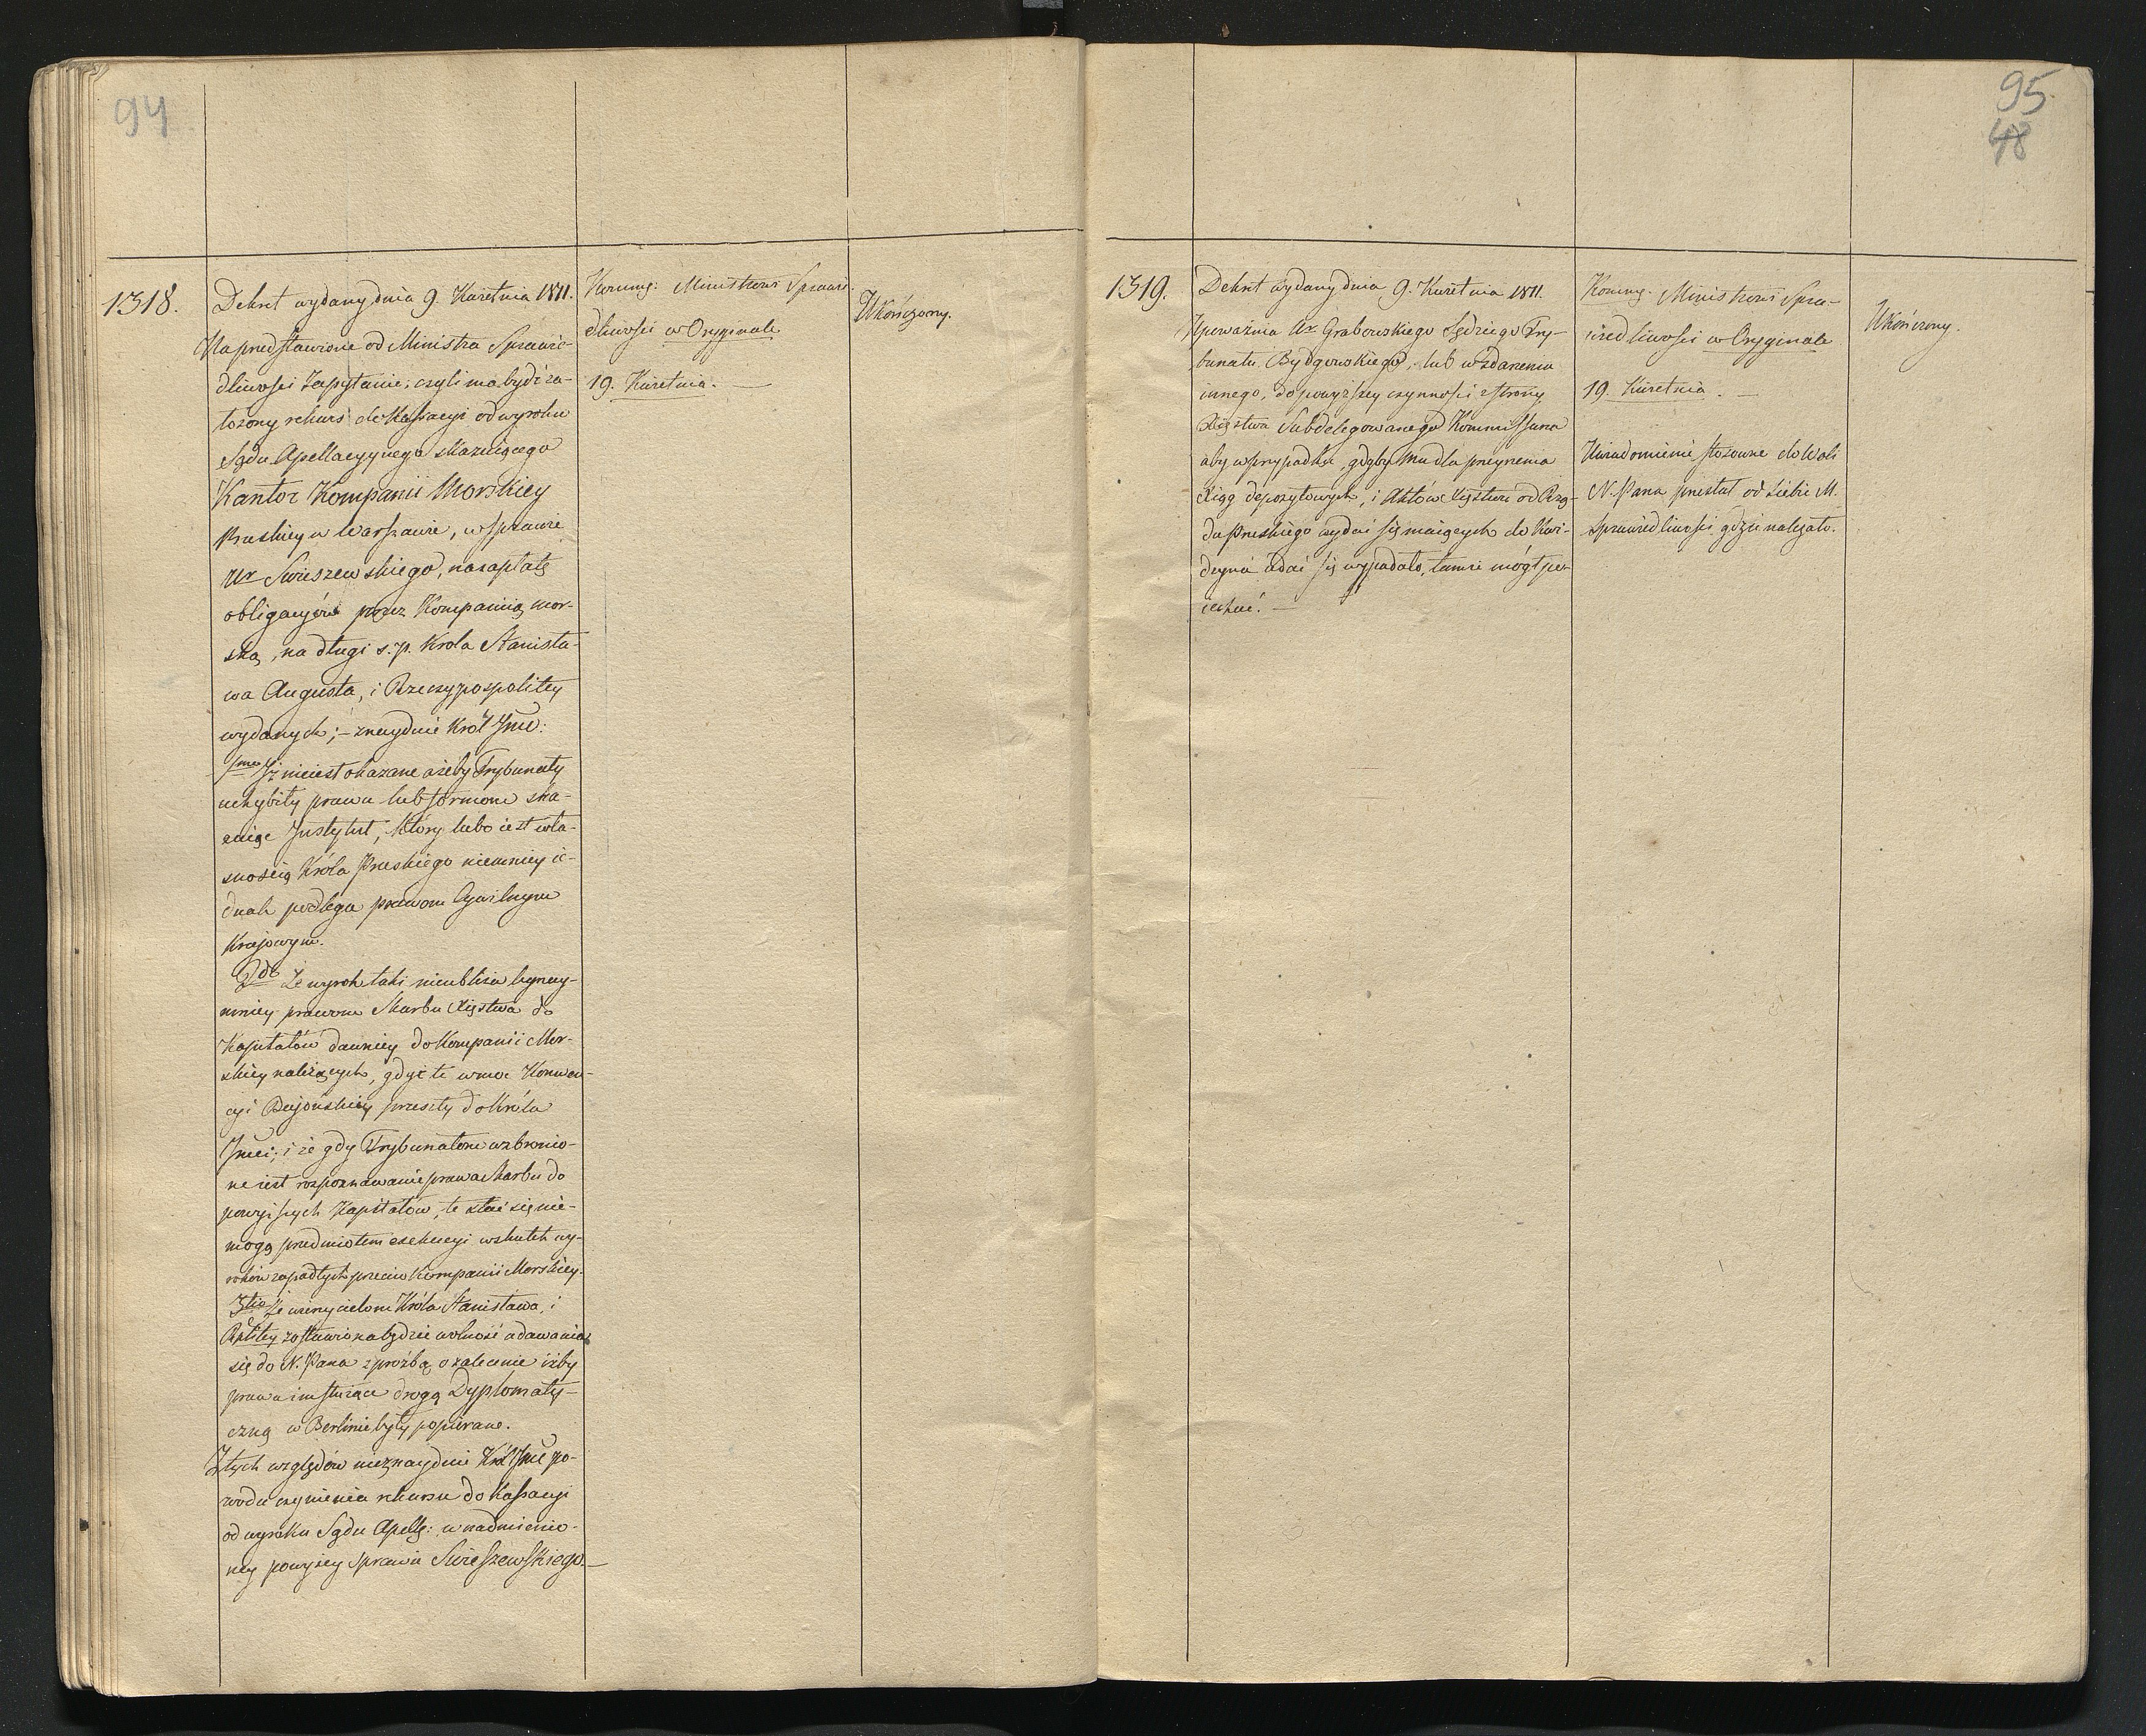 94
1318.
Dekret wydany dnia 9. Kwietnia 1811.
Na przedstawione od Ministra Sprawie-
dliwości Zapytanie; czyli ma bydź za-
łożony rekurs do Kassacyi od wyroku
Sądu Apellacyynego skazuiącego
Kantor Kompanii Morskiey
Pruskiey w Warszawie, w sprawie
Ur Swieszewskiego, na zapłatę
obligacyów przez Kompanią mor-
ską, na długi s. p. Krola Stanisła-
wa Augusta, i Rzeczypospolitey
wydanych; – znayduie Król Jmć:
1mo Iż nieiest okazane ażeby Trybunały
uchybiły prawu lub formom ska-
zuiąc Instytut, który lubo iest wła-
snością Króla Pruskiego niemniey ie-
dnak podlega prawom Cywilnym
Krajowym.
2do Że wyrok taki nieubliża bynay-
mniey prawom Skarbu Xięstwa do
Kapitałów dawniey do Kompanii Mor-
skiey należących, gdyż te w moc Konwen-
cyi Bajońskiey przeszły do Króla
Jmci; i że gdy Trybunałom wzbronio-
ne iest rozpoznawanie prawa Skarbu do
powyższych Kapitałów, te stać się nie-
mogą przedmiotem exekucyi wskutek wy-
roków zapadłych przeciw Kompanii Morskiey.
3tio Że wierzycielom Króla Stanisława, i
Rplitey zostawiona będzie wolność udawania
się do N. Pana z proźbą o zalecenie iżby
prawa im służące drogą Dyplomaty-
czną w Berlinie były popierane.
Z tych względów nieznayduie Król Jmć po-
wodu czynienia rekursu do Kassacyi
od wyroku Sądu Apell: w nadmienio-
ney powyżey sprawie Swieszewskiego. –
Kommg: Ministrowi Sprawie-
dliwości w Oryginale
19. Kwietnia. –
Ukończony.
95
48
1319.
Dekret wydany dnia 9. Kwietnia 1811.
Upoważnia Ur Grabowskiego Sędziego Try-
bunału Bydgowskiego, lub w zdarzeniu
innego, do powyższey czynności z strony
Xięstwa Subdelegowanego Kommissarza
aby w przypadku, gdyby mu dla przeyrzenia
Xiąg depozytowych, i Aktów Xięstwu od Rzą-
du Pruskiego wydać się maiących do Kwi-
dzynia udać się wypadało, tamże mógł po-
iechać. –
Kommg: Ministrowi Spra-
wiedliwości w Oryginale
19 Kwietnia. –
Uwiadomienie stosowne do Woli
N. Pana przesłał od siebie M.
Sprawiedliwości gdzie należało.
Ukończony.